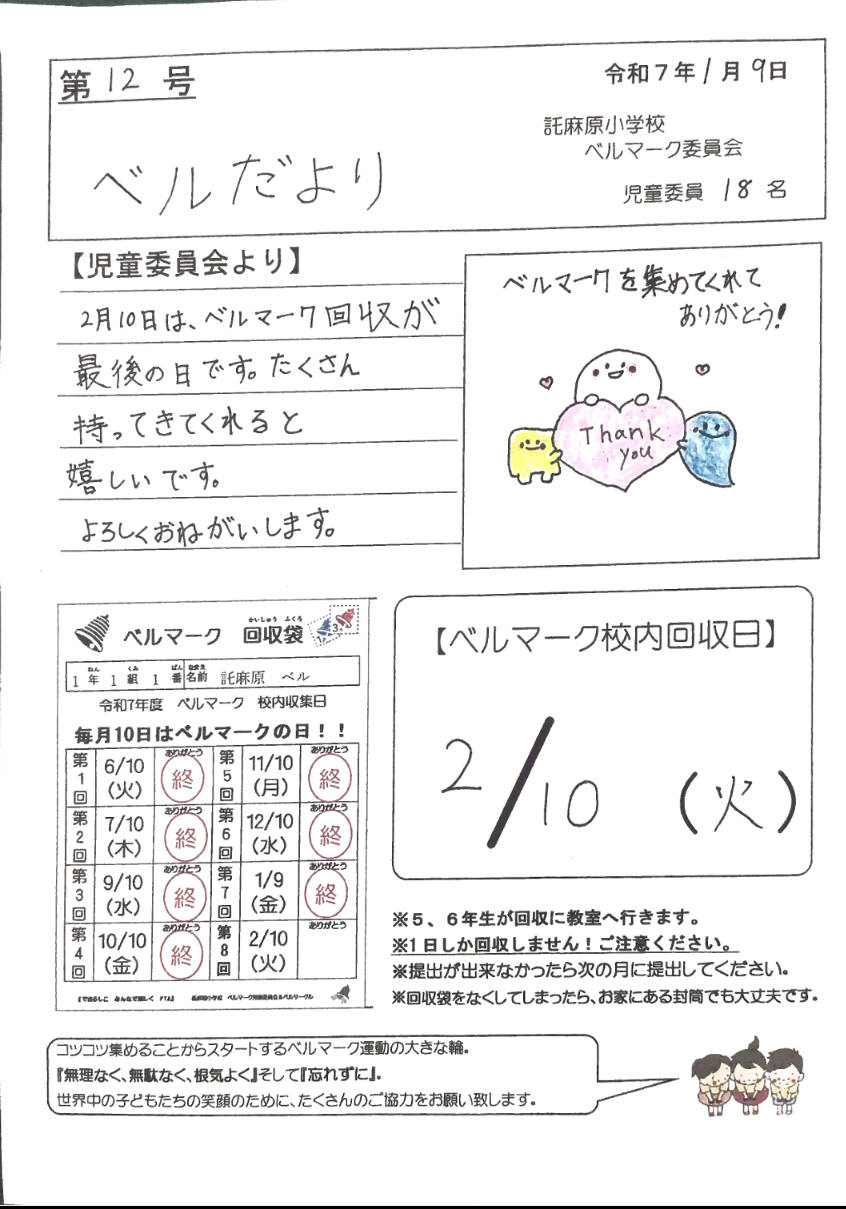 第12号
令和７年1月9日
託麻原小学校
ベルマーク委員会
児童委員 18 名
ベルだより
【児童委員会より】
2月10日は、ベルマーク回収が
最後の日です。たくさん
持ってきてくれると
嬉しいです。
よろしくおねがいします。
ベルマークを集めてくれて
ありがとう!
Thank
you
かいしゅう ふくろ
ベルマーク 回収袋
ねん くみ ばん なまえ
1年1組1番 名前 託麻原 ベル
令和7年度 ベルマーク 校内収集日
毎月10日はベルマークの日！！
第1回 6/10（火） ありがとう 終 第5回 11/10（月） ありがとう 終
第2回 7/10（木） ありがとう 終 第6回 12/10（水） ありがとう 終
第3回 9/10（水） ありがとう 終 第7回 1/9（金） ありがとう 終
第4回 10/10（金） ありがとう 終 第8回 2/10（火） ありがとう
【ベルマーク校内回収日】
2/10 (火)
※５、６年生が回収に教室へ行きます。
※1日しか回収しません！ご注意ください。
※提出が出来なかったら次の月に提出してください。
※回収袋をなくしてしまったら、お家にある封筒でも大丈夫です。
コツコツ集めることからスタートするベルマーク運動の大きな輪。
『無理なく、無駄なく、根気よく』そして『忘れずに』。
世界中の子どもたちの笑顔のために、たくさんのご協力をお願い致します。